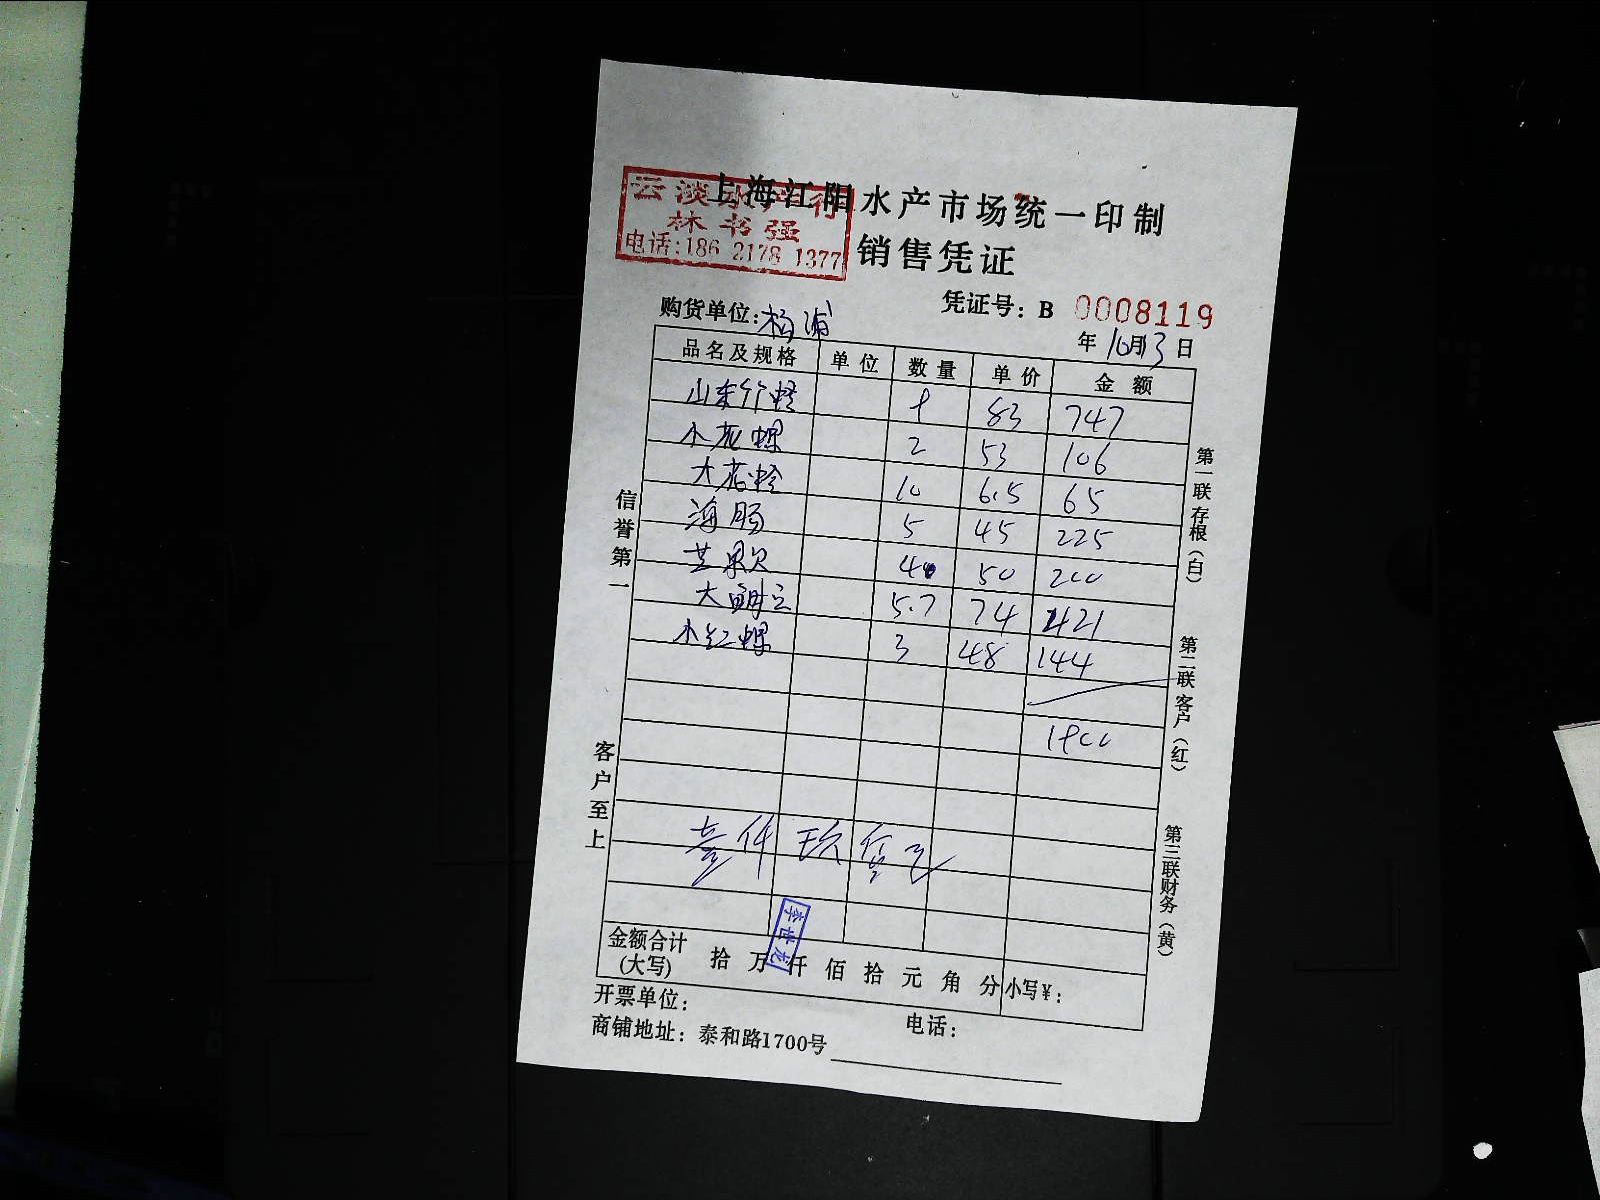 上海江阳水产市场统一印制
云淡水产行
林书强
电话:186 2178 1377
销售凭证
凭证号: B 0008119
购货单位:杨浦
年10月13日
品名及规格 单位 数量 单价 金额
山东竹蛏 9 83 747
小花螺 2 53 106
大花蛤 10 6.5 65
海肠 5 45 225
芒果贝 4 50 200
大明 5.7 74 421
小红螺 3 48 144
1900
壹仟玖佰元
李世龙
金额合计
(大写) 拾万仟佰拾元角分 小写¥:
开票单位: 电话:
商铺地址: 泰和路1700号
信誉第一
客户至上
第一联存根(白)
第二联客户(红)
第三联财务(黄)